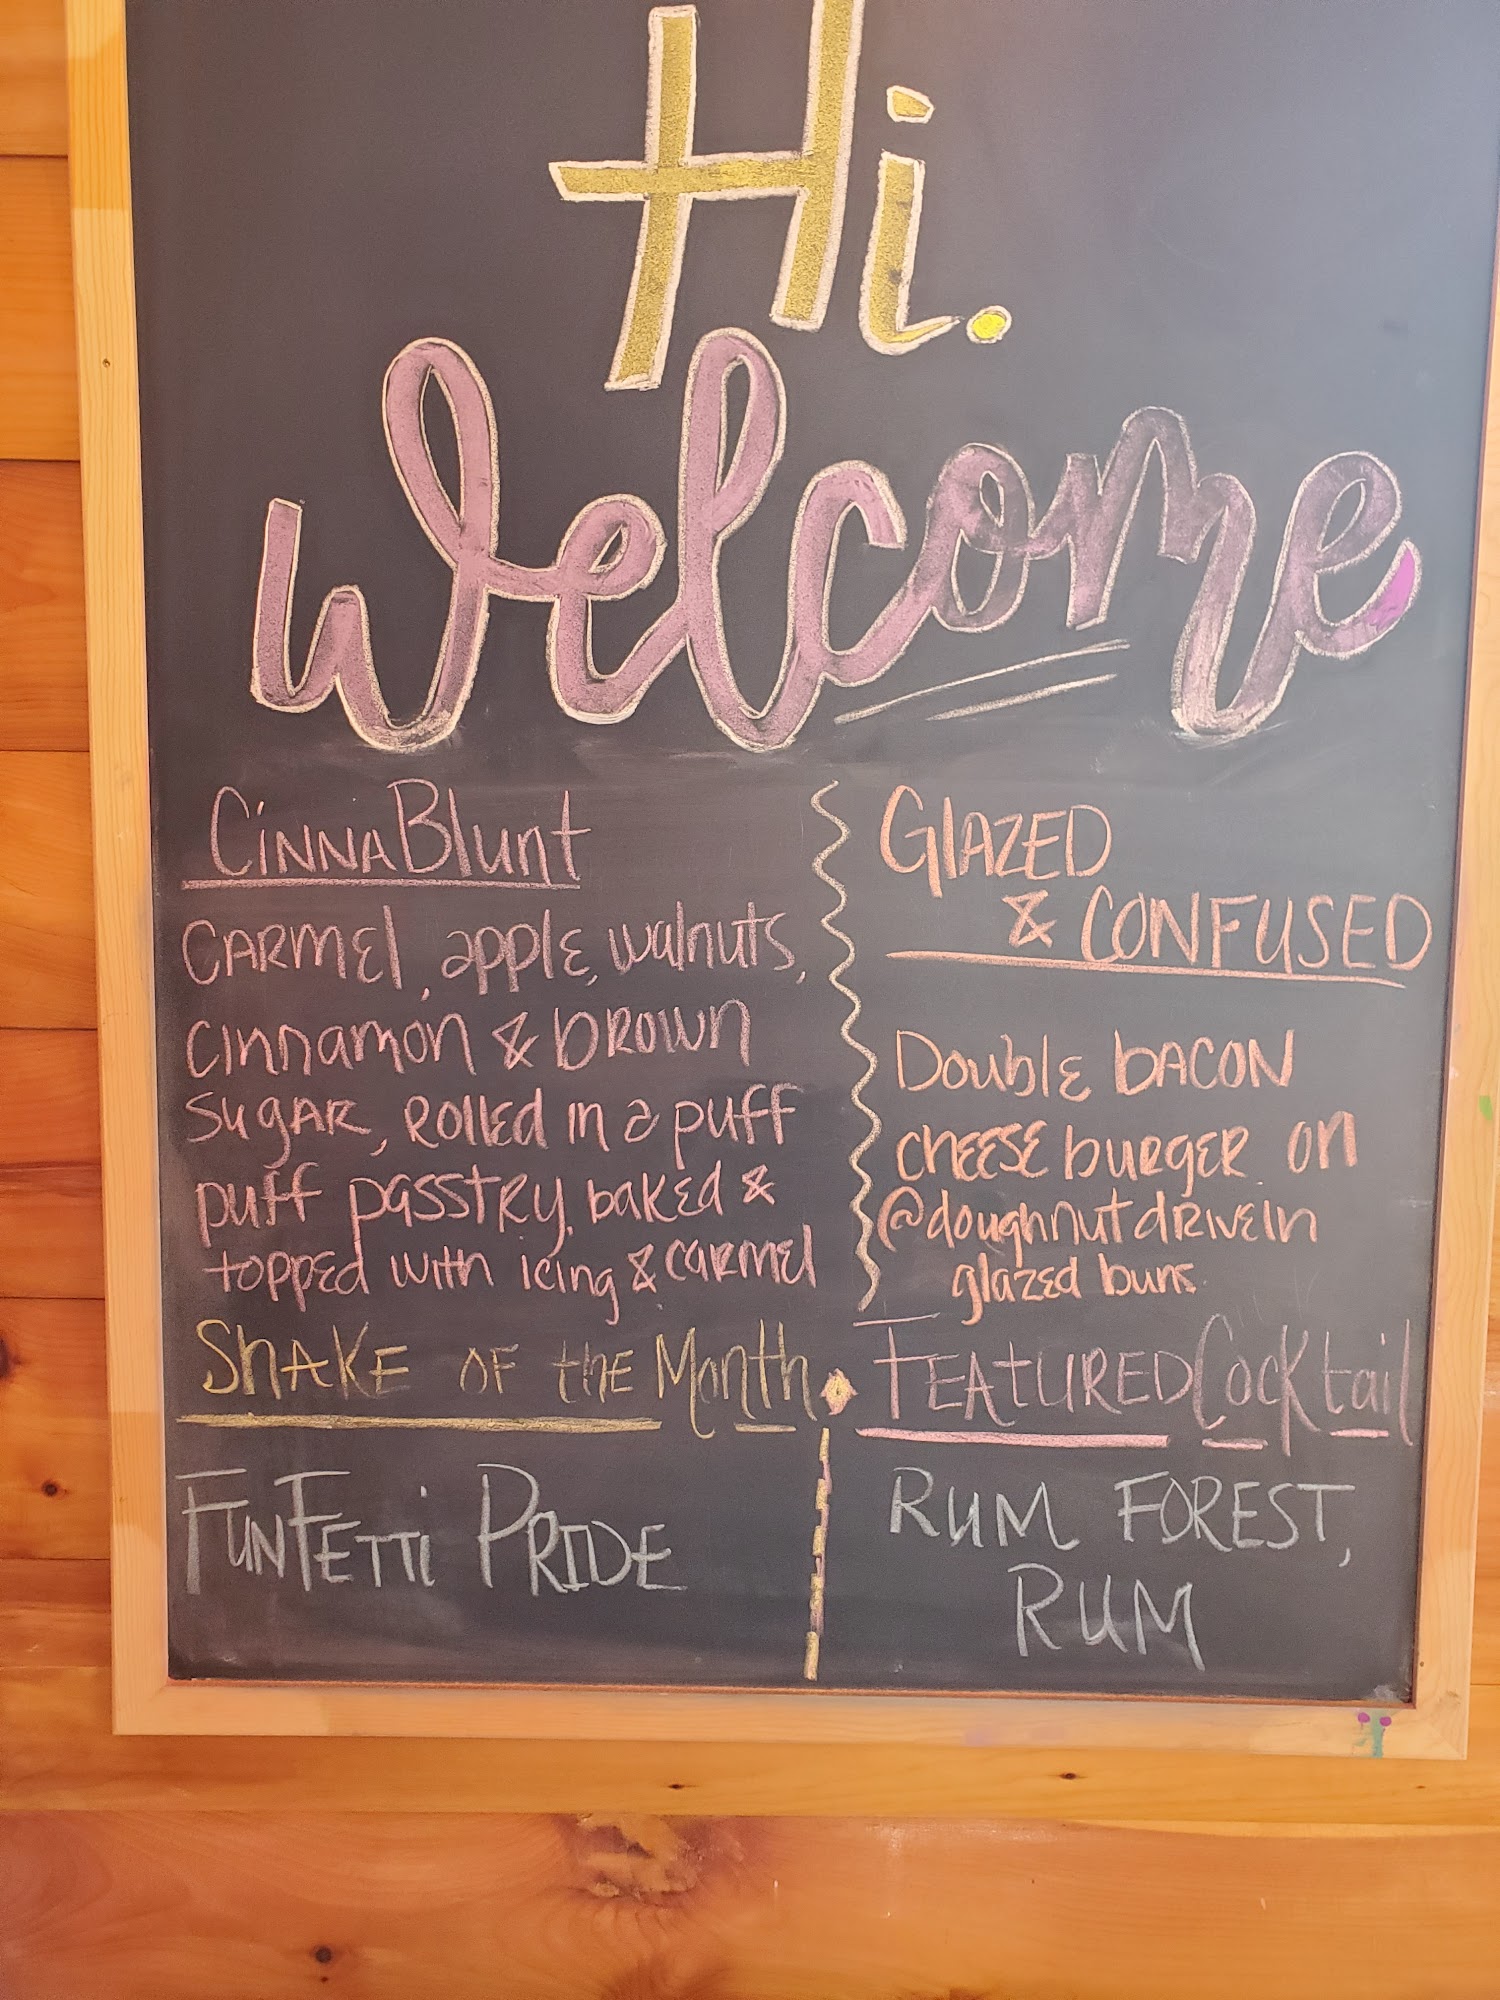 Hi.
Welcome
CinnaBlunt
Carmel, apple, walnuts,
cinnamon & brown
sugar, rolled in a puff
puff passtry, baked &
topped with icing & carmel
Glazed
& Confused
Double bacon
cheese burger on
@doughnutdrivein
glazed buns.
Shake of the Month
Featured Cocktail
FunFetti Pride
Rum Forest,
Rum